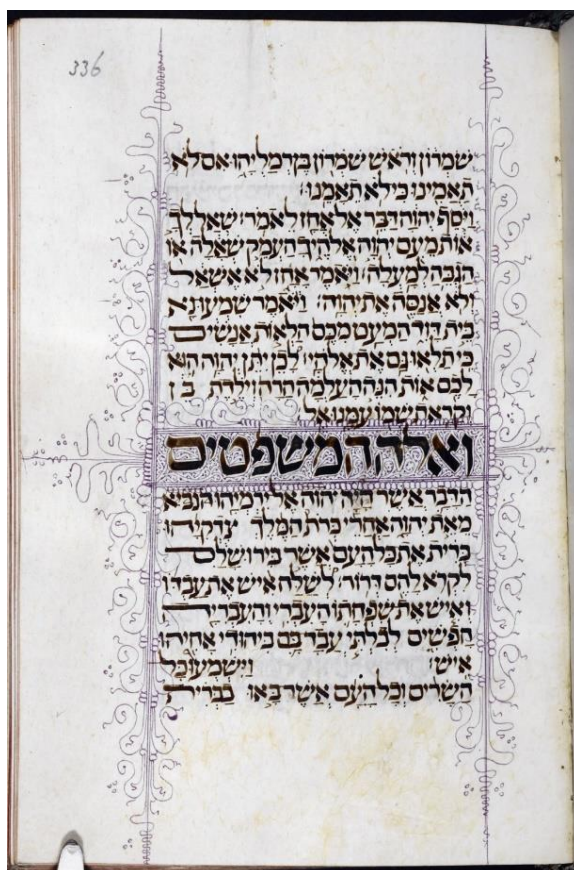 336
שמרון וראש שמרון בן רמליהו אם לא
תאמינו כי לא תאמנו׃
ויסף יהוה דבר אל אחז לאמר׃ שאל לך
אות מעם יהוה אלהיך העמק שאלה או
הגבה למעלה׃ ויאמר אחז לא אשאל
ולא אנסה את יהוה׃ ויאמר שמעו נא
בית דוד המעט מכם הלאות אנשים
כי תלאו גם את אלהי׃ לכן יתן יהוה הוא
לכם אות הנה העלמה הרה וילדת בן
וקראת שמו עמנו אל
ואלה המשפטים
הדבר אשר היה יהוה אל ירמיהו הנביא
מאת יהוה אחרי כרת המלך צדקיהו
ברית את כל העם אשר בירושלם
לקרא להם דרור׃ לשלח איש את עבדו
ואיש את שפחתו העברי והעבריה
חפשים לבלתי עבד בם ביהודי אחיהו
איש׃ וישמעו כל
השרים וכל העם אשר באו בברית